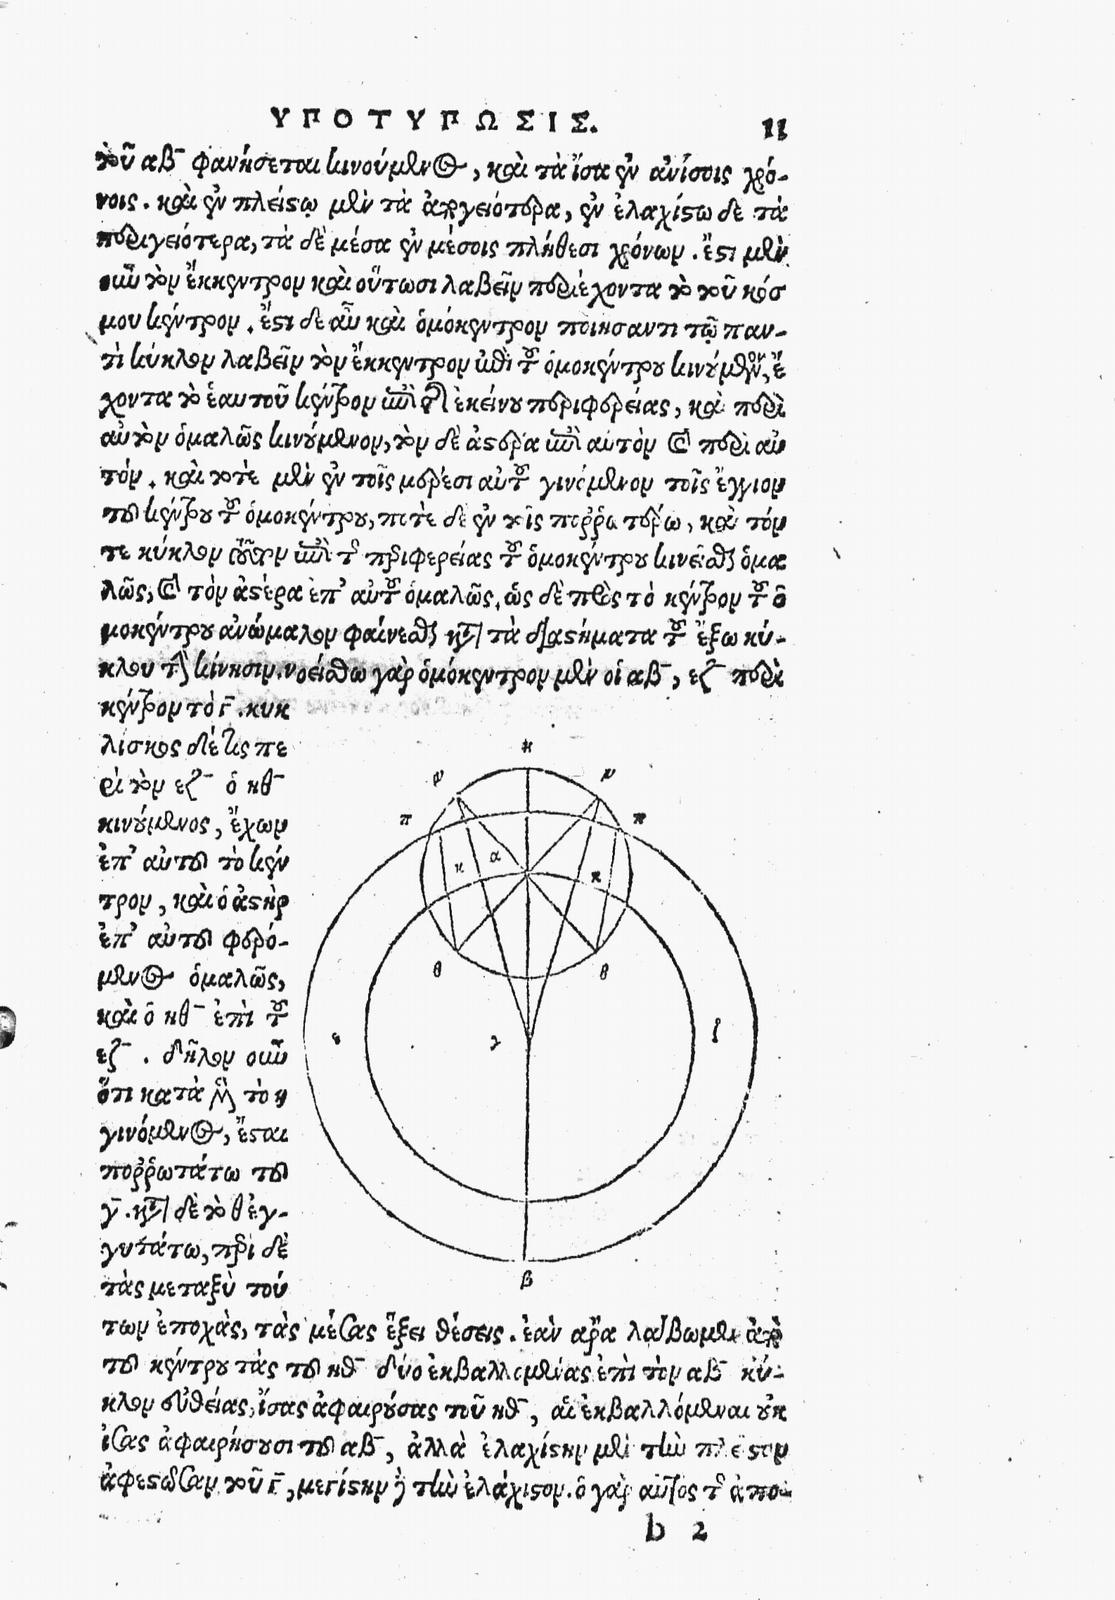 ΥΠΟΤΥΠΩΣΙΣ. 11
τοῦ αβ¯ φανήσεται κινούμενος, καὶ τὰ ἴσα ἐν ἀνίσοις χρό-
νοις. καὶ ἐν πλείστῳ μὲν τὰ ἀπογειότερα, ἐν ἐλαχίστω δὲ τὰ
περιγειότερα, τὰ δὲ μέσα ἐν μέσοις πλήθεσι χρόνων. ἔστι μὲν
οὖν τὸν ἔκκεντρον καὶ οὕτωσι λαβεῖν περιέχοντα τὸ τοῦ κόσ
μου κέντρον. ἔστι δε αὖ καὶ ὁμόκεντρον ποιήσαντι τῷ παν-
τὶ κύκλον λαβεῖν τὸν ἔκκεντρον ἐπὶ τοῦ ὁμοκέντρου κινούμενον, ἔ
χοντα τὸ ἑαυτοῦ κέντρον ἐπὶ τῆς ἐκείνου περιφερείας, καὶ περὶ
αὐτὸν ὁμαλῶς κινούμενον, τὸν δὲ ἀστέρα ἐπὶ αὐτὸν καὶ περὶ αὐ
τόν. καὶ τοτὲ μὲν ἐν τοῖς μέρεσι αὐτοῦ γινόμενον τοῖς ἔγγιον
τοῦ κέντρου τοῦ ὁμοκέντρου, ποτὲ δὲ ἐν τοῖς πορρωτέρω, καὶ τόν
τε κύκλον αὐτὸν ἐπὶ τῆς περιφερείας τοῦ ὁμοκέντρου κινεῖσθαι ὁμα
λῶς, καὶ τὸν ἀστέρα ἐπ' αὐτοῦ ὁμαλῶς, ὡς δὲ πρὸς τὸ κέντρον τοῦ ὁ
μοκέντρου ἀνώμαλον φαίνεσθαι κατὰ τὰ διαστήματα τοῦ ἔξω κύ-
κλου τὴν κίνησιν. νοείσθω γὰρ ὁμόκεντρον μὲν οἱ αβ¯, εζ¯ περὶ
κέντρον τὸ γ¯. κυκ
λίσκος δέ τις πε
ρὶ τὸν εζ¯ ὁ ηθ¯
κινούμενος, ἔχων
ἐπ' αὐτοῦ τὸ κέν
τρον, καὶ ὁ ἀστὴρ
ἐπ' αὐτοῦ φερό-
μενος ὁμαλῶς,
καὶ ὁ ηθ¯ ἐπὶ τοῦ
εζ¯. δῆλον οὖν
ὅτι κατὰ μὲν τὸ η
γινόμενος, ἔσται
πορρωτάτω τοῦ
γ¯. κατὰ δὲ τὸ θ ἐγ-
γυτάτω, περὶ δὲ
τὰς μεταξὺ τού
των ἐποχὰς, τὰς μέσας ἕξει θέσεις. ἐὰν ἄρα λάβωμεν ἀπὸ
τοῦ κέντρου τὰς τοῦ ηθ¯ δύο ἐκβαλλομένας ἐπὶ τὸν αβ¯ κύ-
κλον εὐθείας, ἴσας ἀφαιρούσας τοῦ ηθ¯, αἱ ἐκβαλλόμεναι οὐκ
ἴσας ἀφαιρήσουσι τοῦ αβ¯, ἀλλὰ ἐλαχίστην μὲν τὴν πλεῖστον
ἀφεστῶσαν τοῦ γ¯, μεγίστην δὲ τὴν ἐλάχιστον. ὁ γὰρ αὐτὸς τῆς ἀπο-
η
ν
ν
π
π
κ
α
κ
θ
θ
ε
γ
ζ
β
b 2